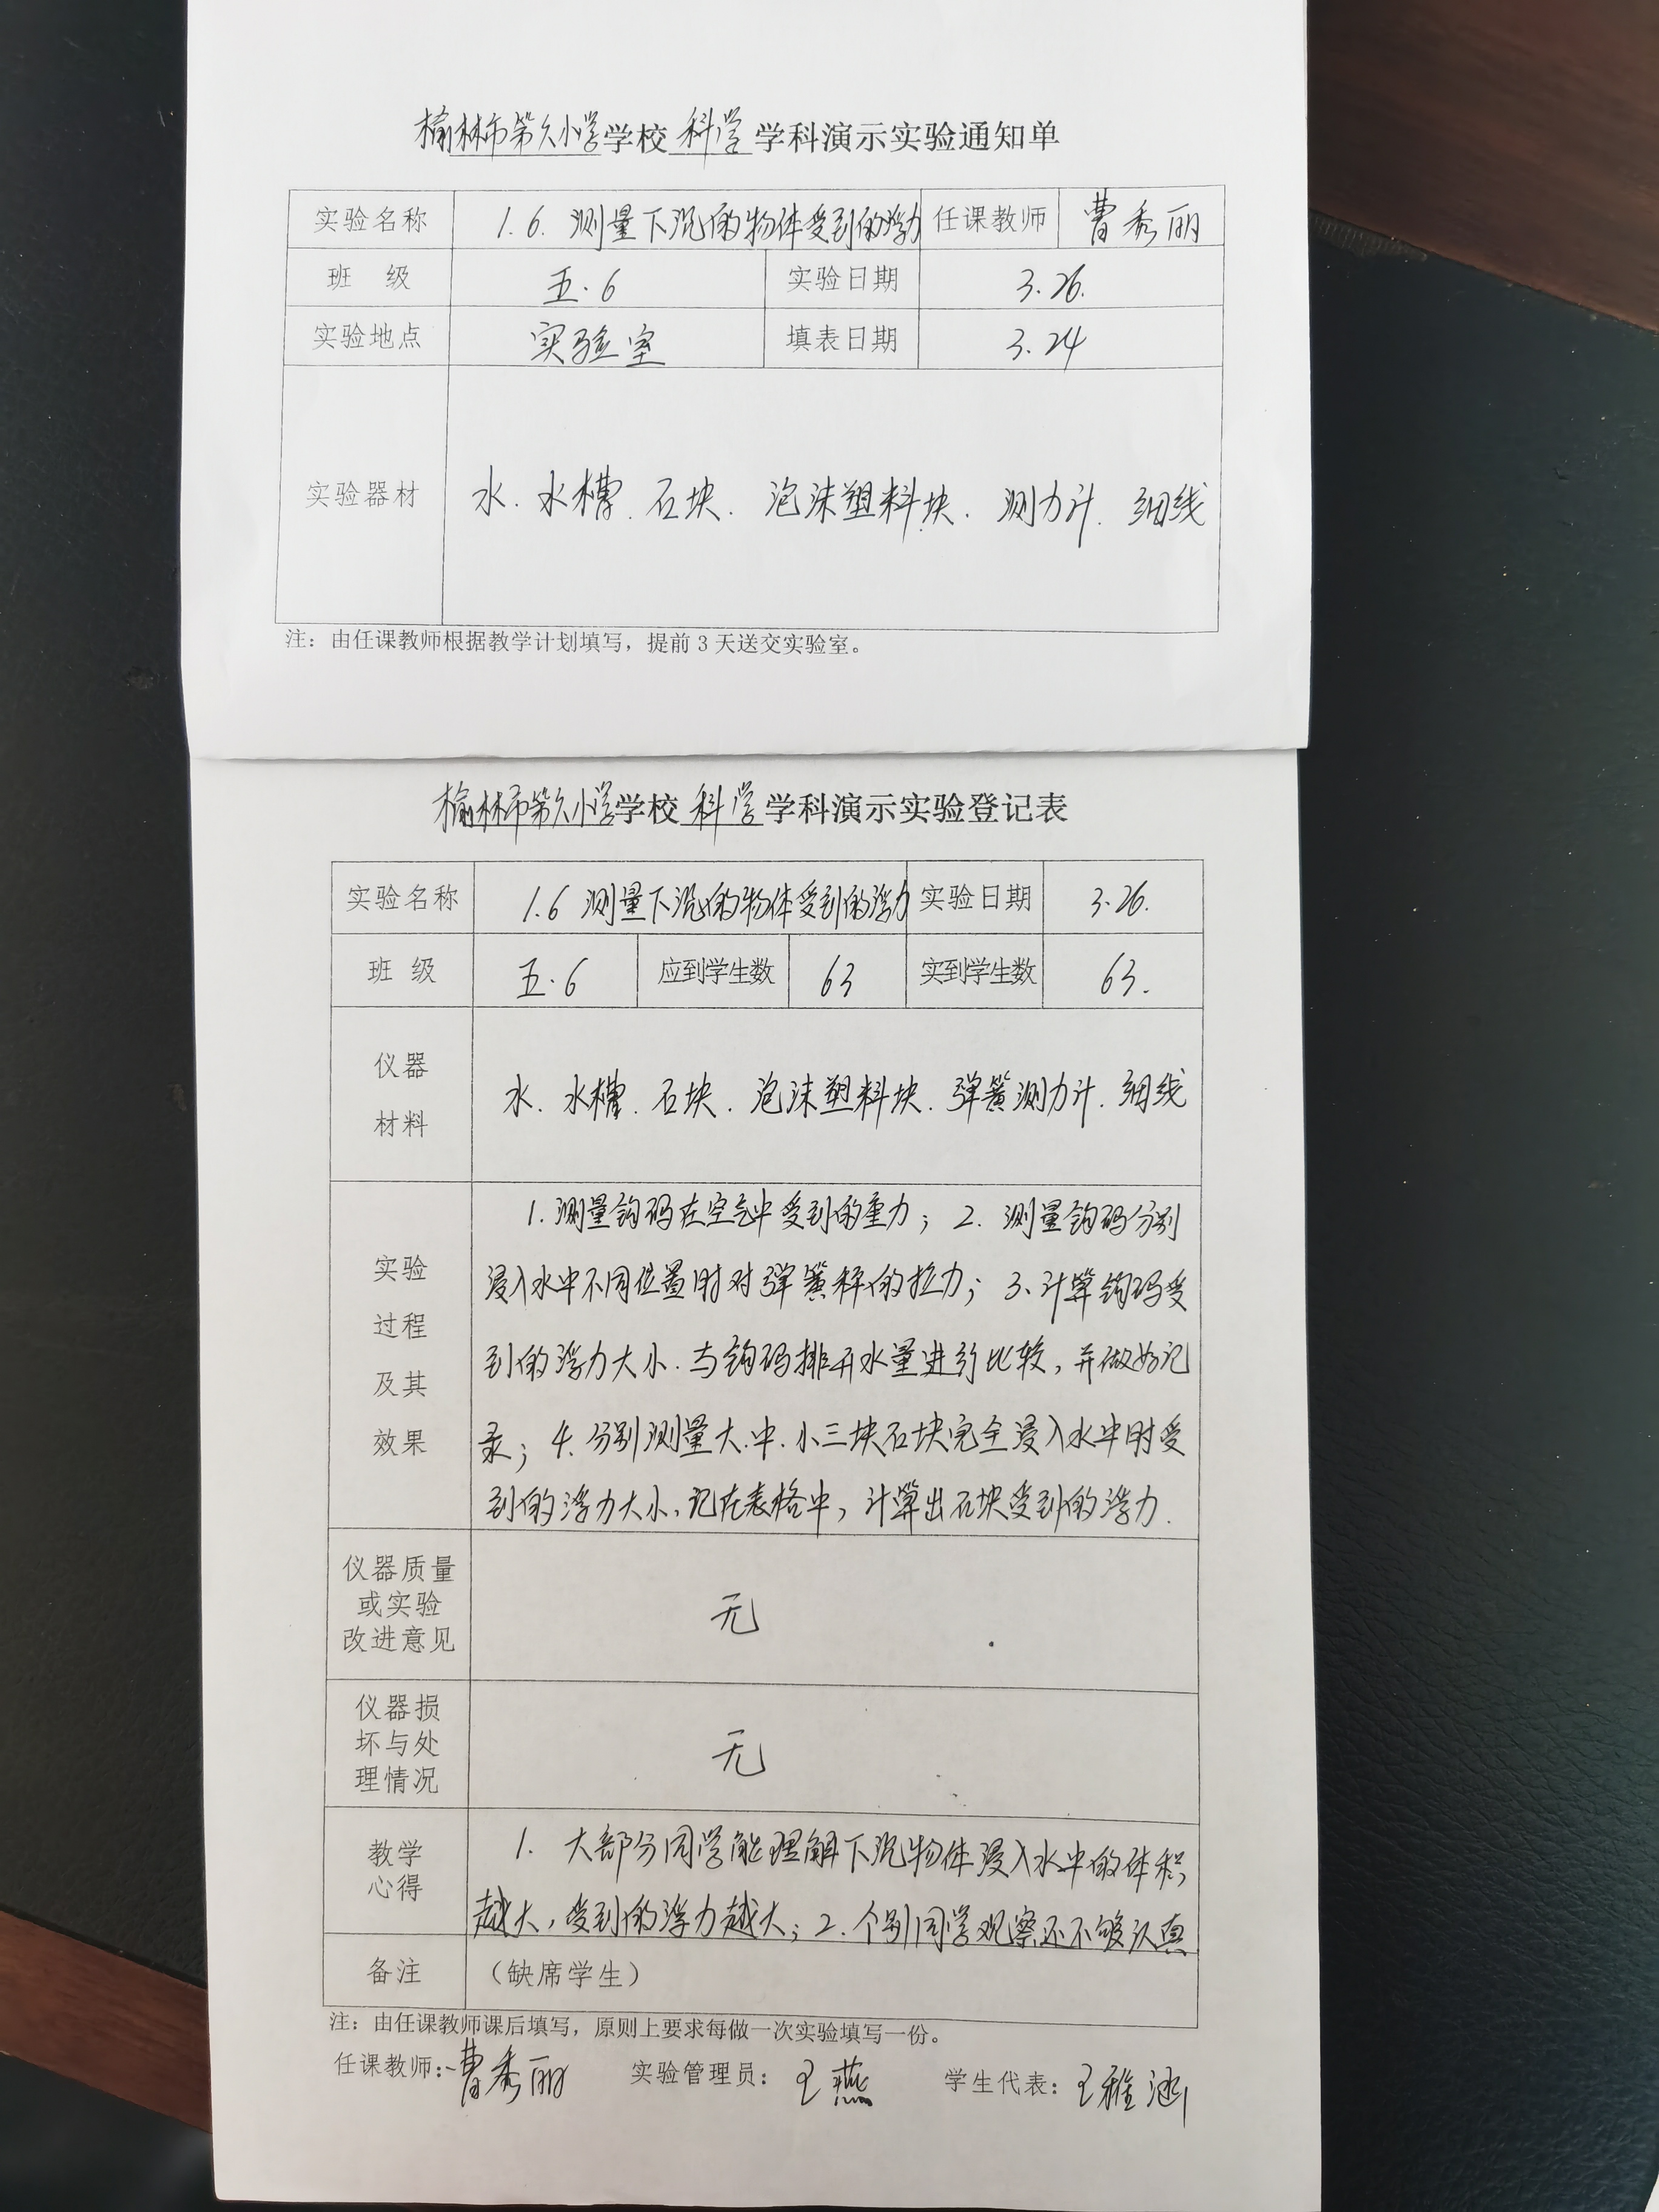 榆林市第九小学学校 科学 学科演示实验通知单
实验名称 1.6. 测量下沉的物体受到的浮力 任课教师 曹秀丽
班 级 五.6 实验日期 3.26.
实验地点 实验室 填表日期 3.24
实验器材 水. 水槽. 石块. 泡沫塑料块. 测力计. 细线
注：由任课教师根据教学计划填写，提前3天送交实验室。
榆林市第九小学学校 科学 学科演示实验登记表
实验名称 1.6 测量下沉的物体受到的浮力 实验日期 3.26.
班 级 五.6 应到学生数 63 实到学生数 63.
仪器
材料
水. 水槽. 石块. 泡沫塑料块. 弹簧测力计. 细线
实验
过程
及其
效果
1. 测量钩码在空气中受到的重力；2. 测量钩码分别
浸入水中不同位置时对弹簧秤的拉力；3. 计算钩码受
到的浮力大小. 与钩码排开水量进行比较，并做好记
录；4. 分别测量大.中.小三块石块完全浸入水中时受
到的浮力大小，记在表格中，计算出石块受到的浮力.
仪器质量
或实验
改进意见
无
仪器损
坏与处
理情况
无
教学
心得
1. 大部分同学能理解下沉物体浸入水中的体积
越大，受到的浮力越大；2. 个别同学观察还不够认真
备注 （缺席学生）
注：由任课教师课后填写，原则上要求每做一次实验填写一份。
任课教师：曹秀丽 实验管理员：王燕 学生代表：王雅涵